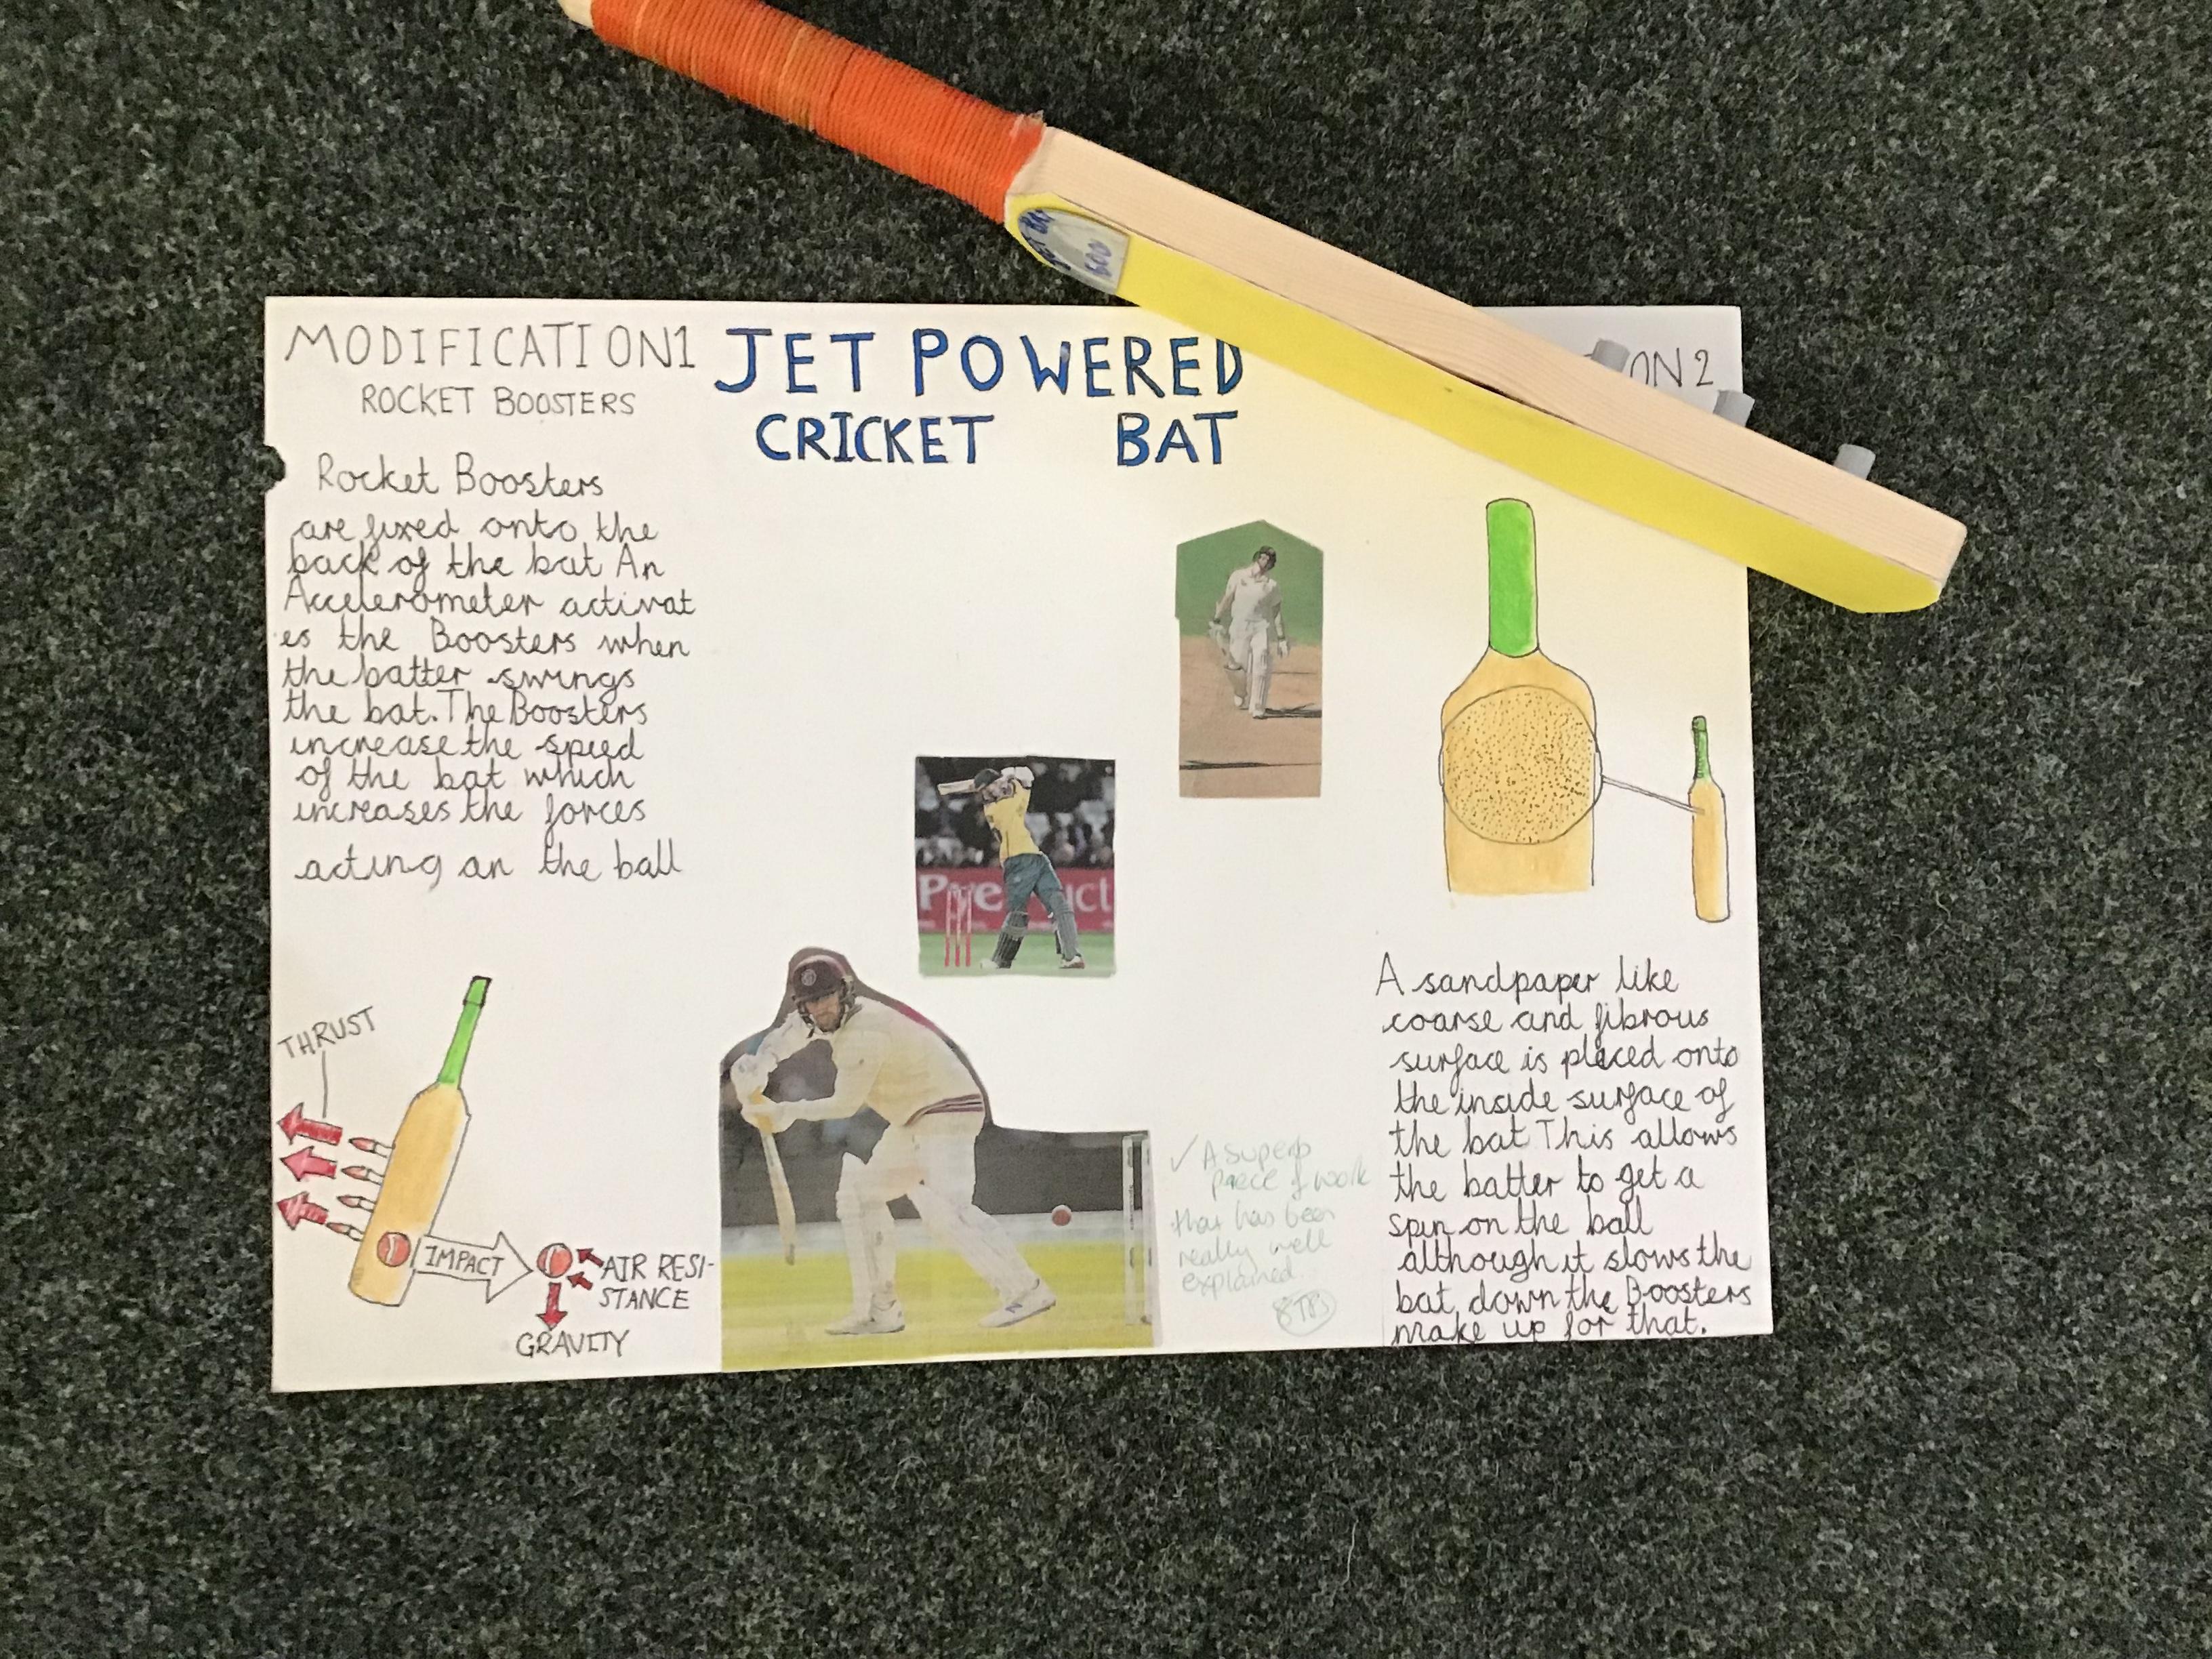 MODIFICATION1
ROCKET BOOSTERS
Rocket Boosters
are fixed onto the
back of the bat An
Accelerometer activat
es the Boosters when
the batter swings
the bat. The Boosters
increase the speed
of the bat which
increases the forces
acting an the ball
THRUST
IMPACT
AIR RESI-
STANCE
GRAVITY
JET POWERED
CRICKET BAT
✓ A superb
piece of work
that has been
really well
explained.
ON 2
A sandpaper like
coarse and fibrous
surface is placed onto
the inside surface of
the bat This allows
the batter to get a
spin on the ball
although it slows the
bat down the Boosters
make up for that.